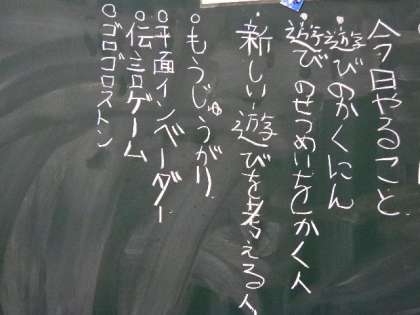 今日やること
・遊びのかくにん
・遊びのせつめいをかく人
・新しい遊びを考える人
○もうじゅうがり
○平面インベーダー
○伝言ゲーム
○ゴロゴロストン